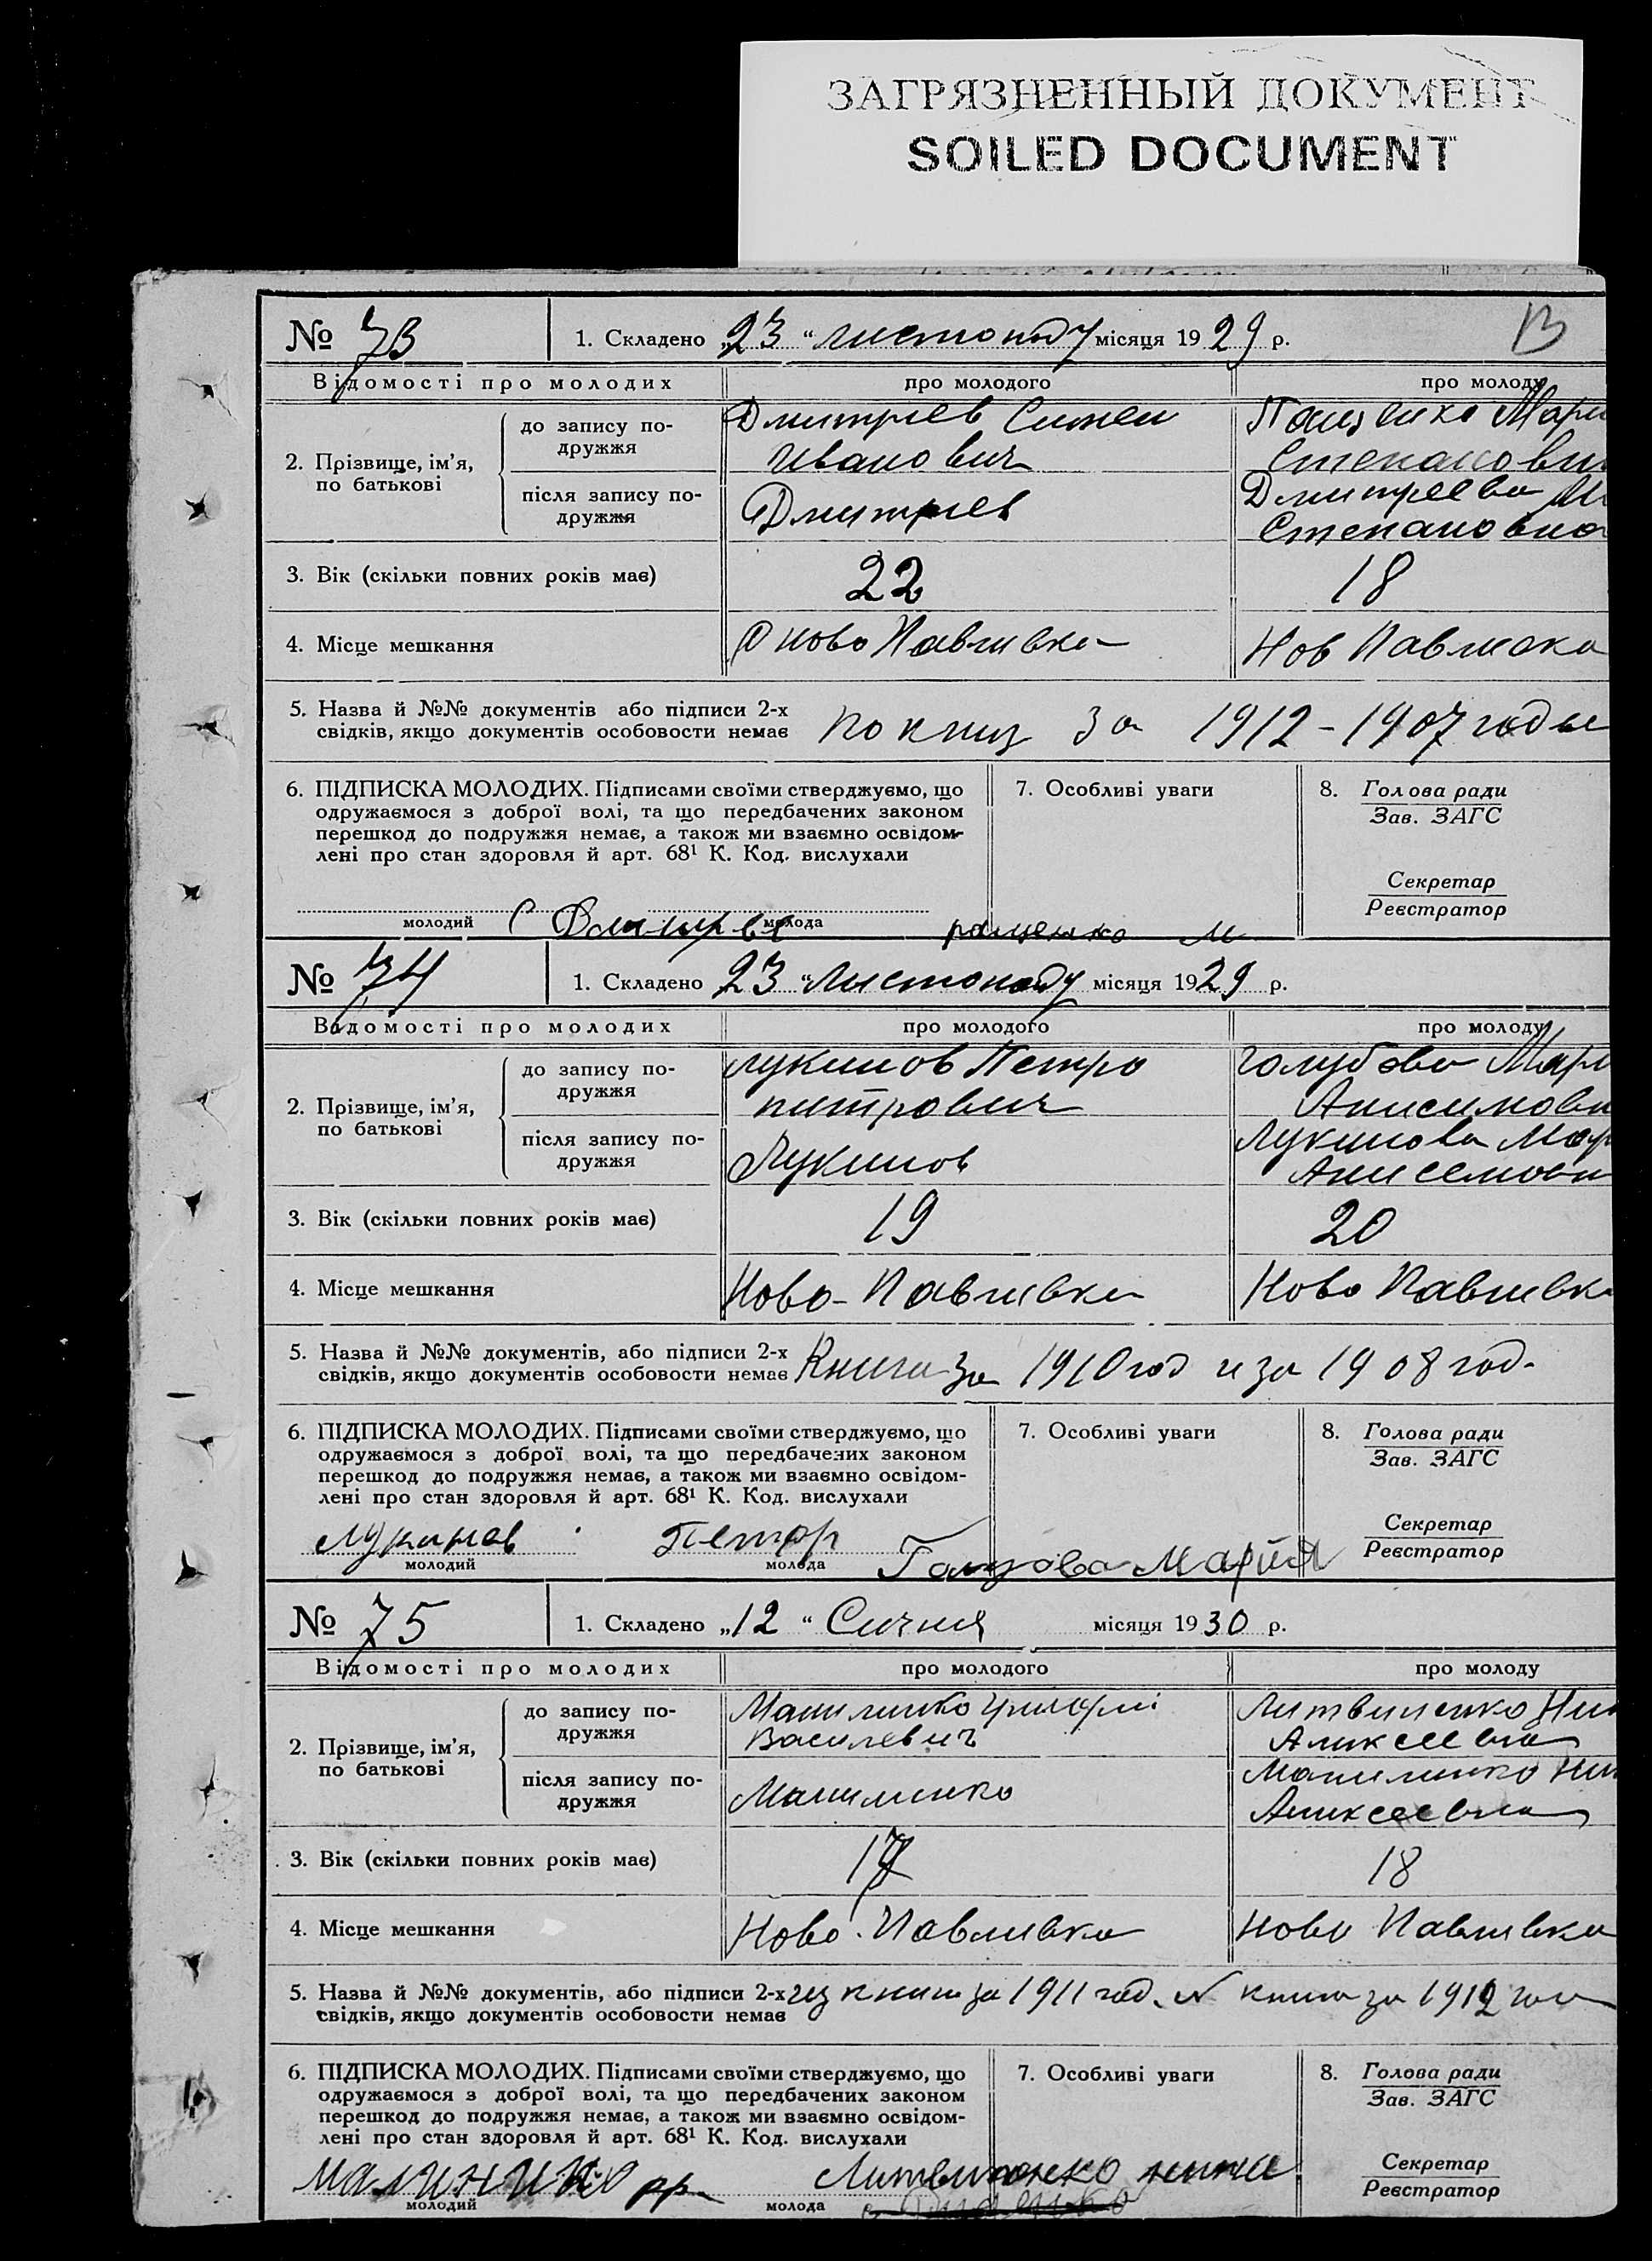 ЗАГРЯЗНЕННЫЙ ДОКУМЕНТ
SOILED DOCUMENT
№ 73
1. Складено „23“ листопаду місяця 1929 р.
13
Відомості про молодих
про молодого
про молоду
2. Прізвище, ім’я, по батькові
до запису по-
дружжя
Дмитриев Симен
Иванович
Мари
Степанови
після запису по-
дружжя
Дмитриев
Дмитреева М
Степановна
3. Вік (скільки повних років має)
22
18
4. Місце мешкання
Ново Павливка
Нов Павливка
5. Назва й №№ документів або підписи 2-х
свідків, якщо документів особовости немає
по книз за 1912-1907 годы
6. ПІДПИСКА МОЛОДИХ. Підписами своїми стверджуємо, що
одружаємося з доброї волі, та що передбачених законом
перешкод до подружжя немає, а також ми взаємно освідом-
лені про стан здоровля й арт. 68¹ К. Код. вислухали
7. Особливі уваги
8. Голова ради
Зав. ЗАГС
Секретар
Реєстратор
молодий
молода
№ 74
1. Складено 23 “Листопаду місяця 1929 р.
Відомості про молодих
про молодого
про молоду
2. Прізвище, ім’я,
по батькові
до запису по-
дружжя
Лукинов Петро
питрович
Голубова Мари
Анисимовн
після запису по-
дружжя
Лукинов
Лукинова Мар
Анисемовн
3. Вік (скільки повних років має)
19
20
4. Місце мешкання
Ново-Павливка
Ново Павливка
5. Назва й №№ документів, або підписи 2-х
свідків, якщо документів особовости немає
Книга за 1910 год и за 1908 год.
6. ПІДПИСКА МОЛОДИХ. Підписами своїми стверджуємо, що
одружаємося з доброї волі, та що передбачених законом
перешкод до подружжя немає, а також ми взаємно освідом-
лені про стан здоровля й арт. 68¹ К. Код. вислухали
7. Особливі уваги
8. Голова ради
Зав. ЗАГС
Секретар
Реєстратор
Лукинов Петор
Мария
молодий
молода
№ 75
1. Складено „12“ Сичня місяця 1930 р.
Відомості про молодих
про молодого
про молоду
2. Прізвище, ім’я,
по батькові
до запису по-
дружжя
Григорий
Василевич
Литвиненко Нин
Алексеевна
після запису по-
дружжя
Нин
Алексеевна
3. Вік (скільки повних років має)
18
4. Місце мешкання
Ново-Павливка
Ново Павливка
5. Назва й №№ документів, або підписи 2-х
свідків, якщо документів особовости немає
из книги за 1911 год. книга за 1912 год
6. ПІДПИСКА МОЛОДИХ. Підписами своїми стверджуємо, що
одружаємося з доброї волі, та що передбачених законом
перешкод до подружжя немає, а також ми взаємно освідом-
лені про стан здоровля й арт. 68¹ К. Код. вислухали
7. Особливі уваги
8. Голова ради
Зав. ЗАГС
Секретар
Реєстратор
нина
молодий
молода